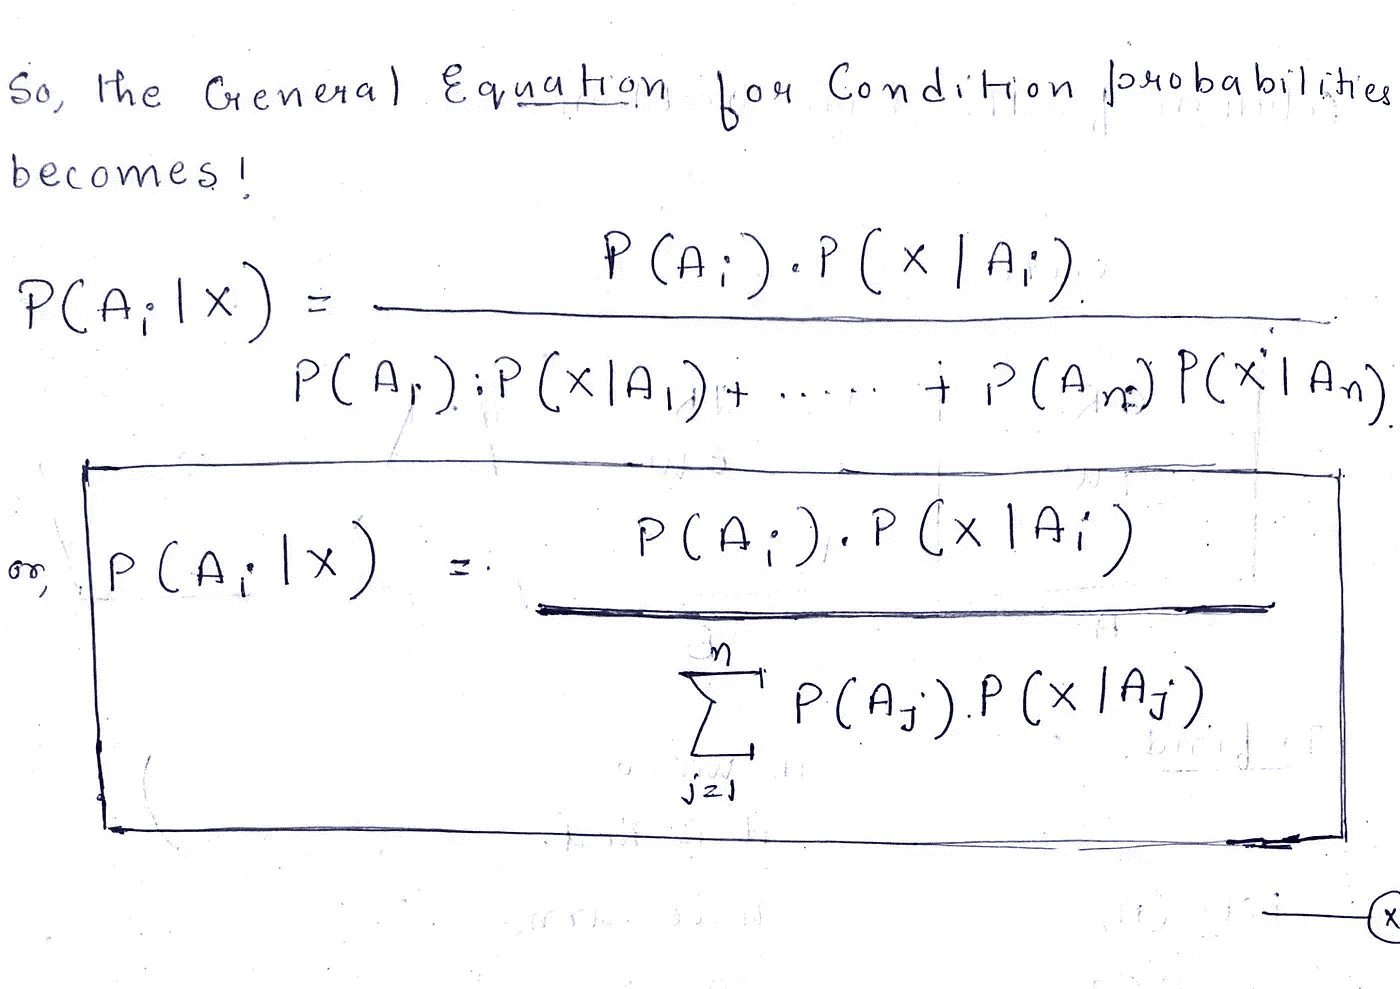 So, the General Equation for Condition probabilities
becomes!
P(Ai|X) = P(Ai).P(X|Ai) / P(A1).P(X|A1)+ ..... + P(An) P(X|An).
or, P(Ai|X) = P(Ai).P(X|Ai) / n Σ j=1 P(Aj).P(X|Aj).
X